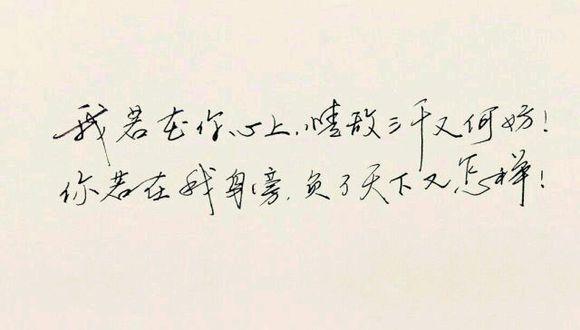 我若在你心上,情敌三千又何妨!
你若在我身旁,负了天下又怎样!